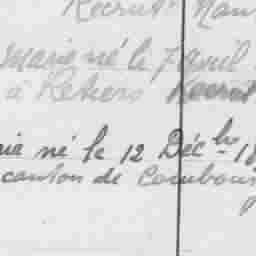 Recrut
Marie né le 7 avril
à Retiers Recrut
rie né le 12 Déc bre 18
canton de Combour